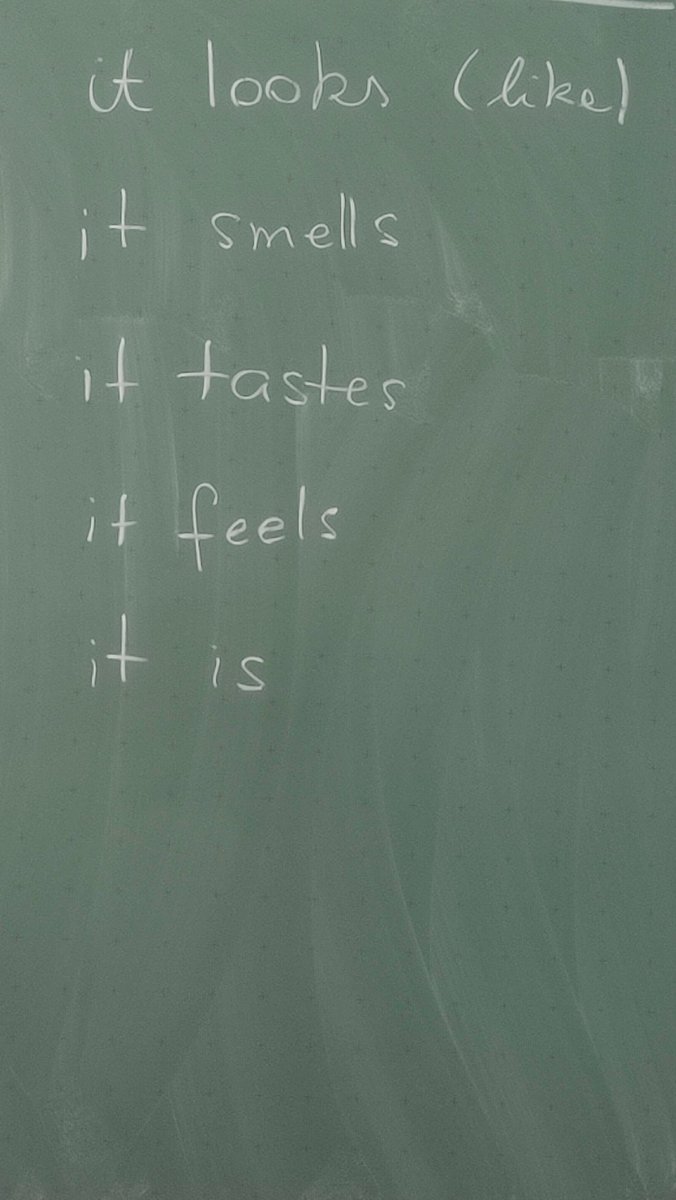 it looks (like)
it smells
it tastes
it feels
it is